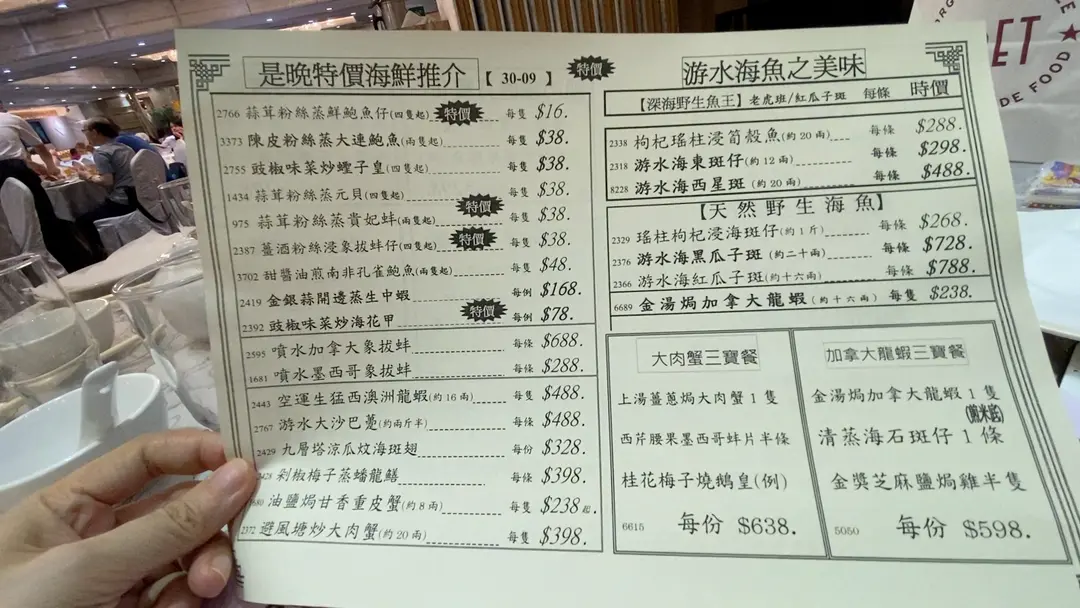 是晚特價海鮮推介【30-09】特價
2766 蒜茸粉絲蒸鮮鮑魚仔(四隻起) 特價 每隻 $16.
3373 陳皮粉絲蒸大連鮑魚(兩隻起) 每隻 $38.
2755 豉椒味菜炒蟶子皇(四隻起) 每隻 $38.
1434 蒜茸粉絲蒸元貝(四隻起) 每隻 $38.
975 蒜茸粉絲蒸貴妃蚌(兩隻起) 特價 每隻 $38.
2387 薑酒粉絲浸象拔蚌仔(四隻起) 特價 每隻 $38.
3702 甜醬油煎南非孔雀鮑魚(兩隻起) 每隻 $48.
2419 金銀蒜開邊蒸生中蝦 每例 $168.
2392 豉椒味菜炒海花甲 特價 每例 $78.
2595 噴水加拿大象拔蚌 每條 $688.
1681 噴水墨西哥象拔蚌 每條 $288.
2443 空運生猛西澳洲龍蝦(約16兩) 每隻 $488.
2767 游水大沙巴躉(約兩斤半) 每條 $488.
2429 九層塔涼瓜炆海斑翅 每份 $328.
2428 剁椒梅子蒸蟠龍鱔 每條 $398.
油鹽焗甘香重皮蟹(約8兩) 每隻 $238起.
2372 避風塘炒大肉蟹(約20兩) 每隻 $398.
游水海魚之美味
【深海野生魚王】老虎班/紅瓜子斑 每條 時價
2338 枸杞瑤柱浸筍殼魚(約20兩) 每條 $288.
2318 游水海東斑仔(約12兩) 每條 $298.
8228 游水海西星斑(約20兩) 每條 $488.
【天然野生海魚】
2329 瑤柱枸杞浸海斑仔(約1斤) 每條 $268.
2376 游水海黑瓜子斑(約二十兩) 每條 $728.
2366 游水海紅瓜子斑(約十六兩) 每條 $788.
6689 金湯焗加拿大龍蝦(約十六兩) 每隻 $238.
大肉蟹三寶餐
上湯薑蔥焗大肉蟹1隻
西芹腰果墨西哥蚌片半條
桂花梅子燒鵝皇(例)
6615 每份 $638.
加拿大龍蝦三寶餐
金湯焗加拿大龍蝦1隻
清蒸海石斑仔1條
金獎芝麻鹽焗雞半隻
5050 每份 $598.